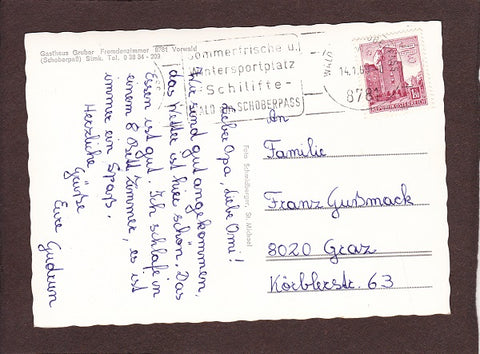 Gasthaus Gruber Fremdenzimmer 8781 Vorwald
(Schoberpaß) Stmk. Tel. 0 38 34 - 209
Sommerfrische u.
Wintersportplatz
- Schilifte -
WALD AM SCHOBERPASS
14.1.6
8781
REPUBLIK ÖSTERREICH
Lieber Opa, liebe Omi!
Wir sind gut angekommen,
das Wetter ist hier schön. Das
Essen ist gut. Ich schlafe in
einem 8 Bett Zimmer, es ist
immer ein Spaß.
Herzliche
Grüße
Eure Gudrun
Foto Schmölberger, St. Michael
An
Familie
Franz Gußmack
8020 Graz
Körblerstr. 63